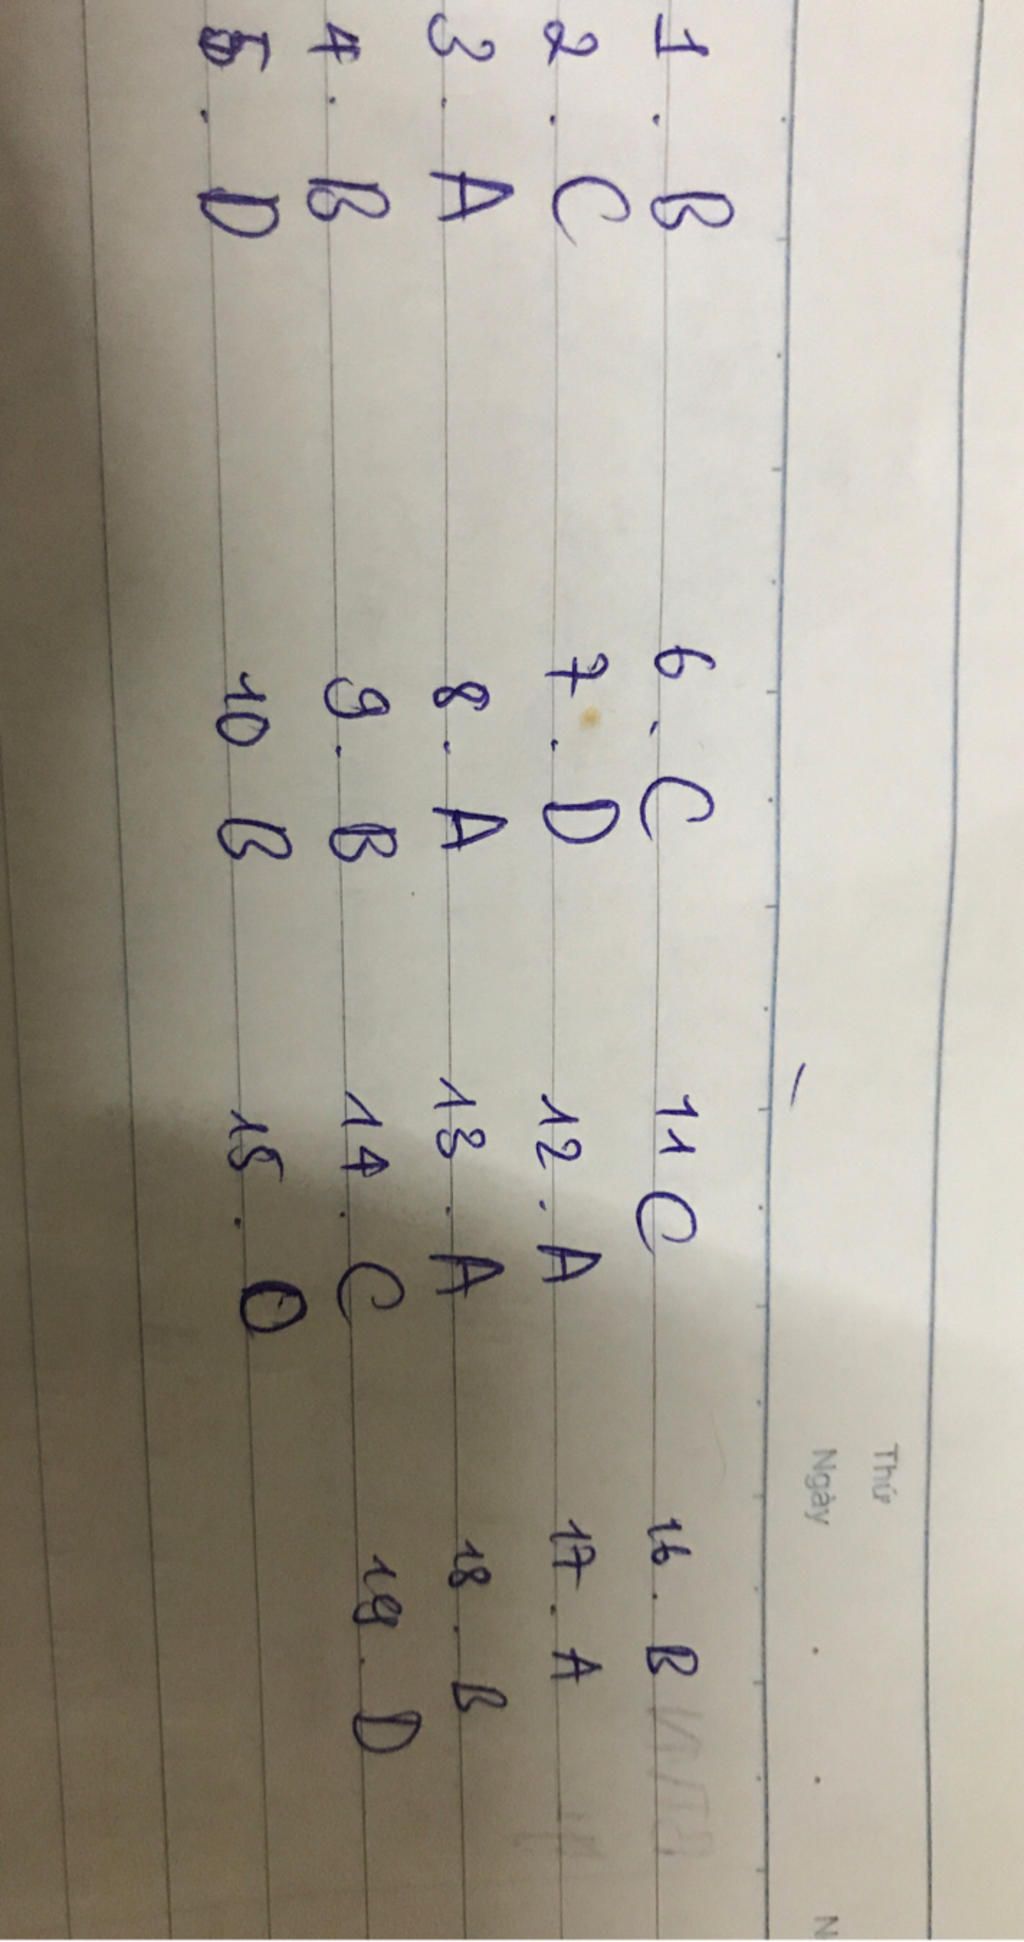 Thứ
Ngày . . N
1. B 6. C 11 C 16. B
2. C 7. D 12. A 17. A
3. A 8. A 13. A 18. B
4. B 9. B 14. C 19. D
5. D 10 B 15. O